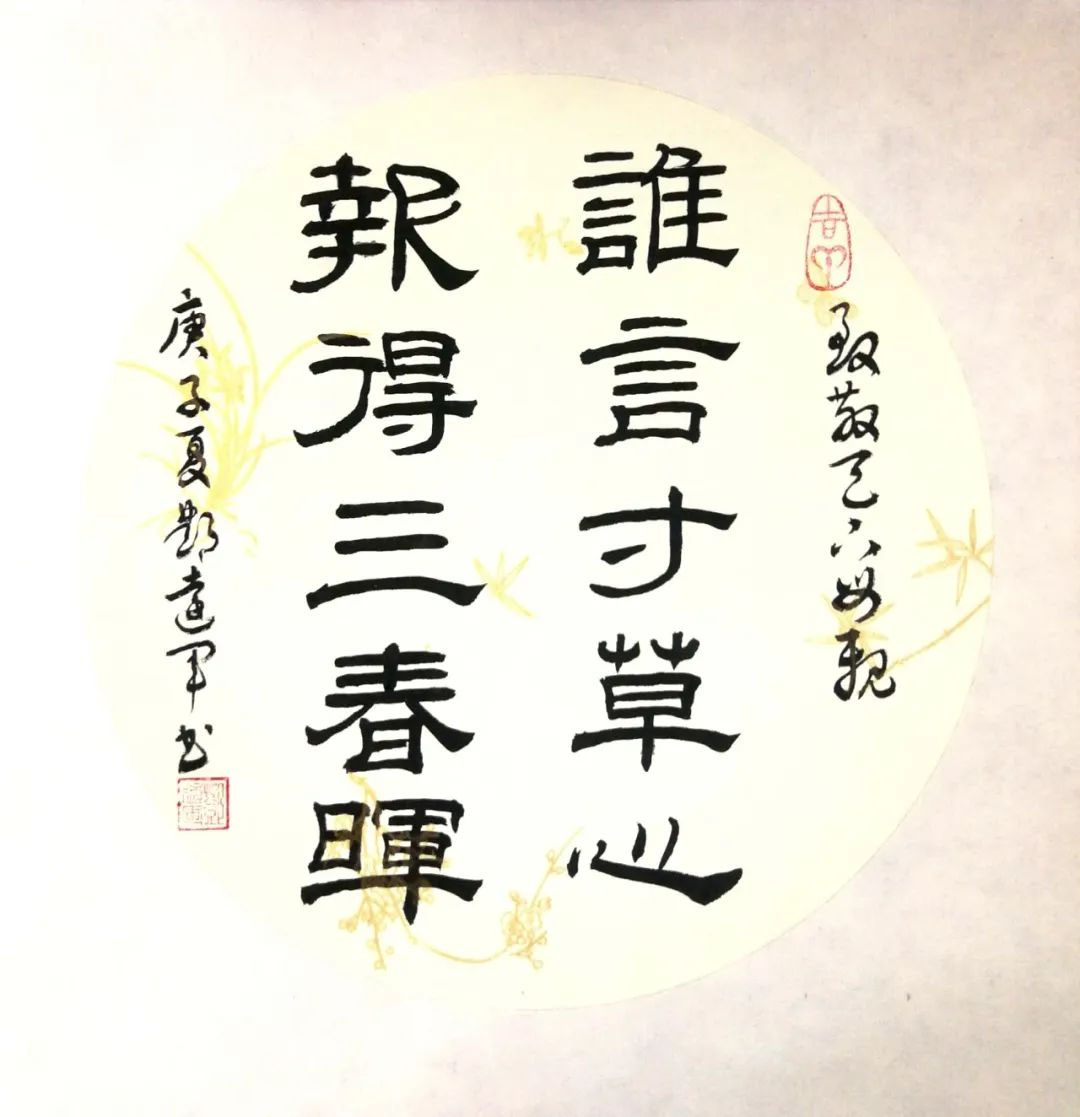 致敬天下母親
誰言寸草心
報得三春暉
庚子夏鄭達軍书